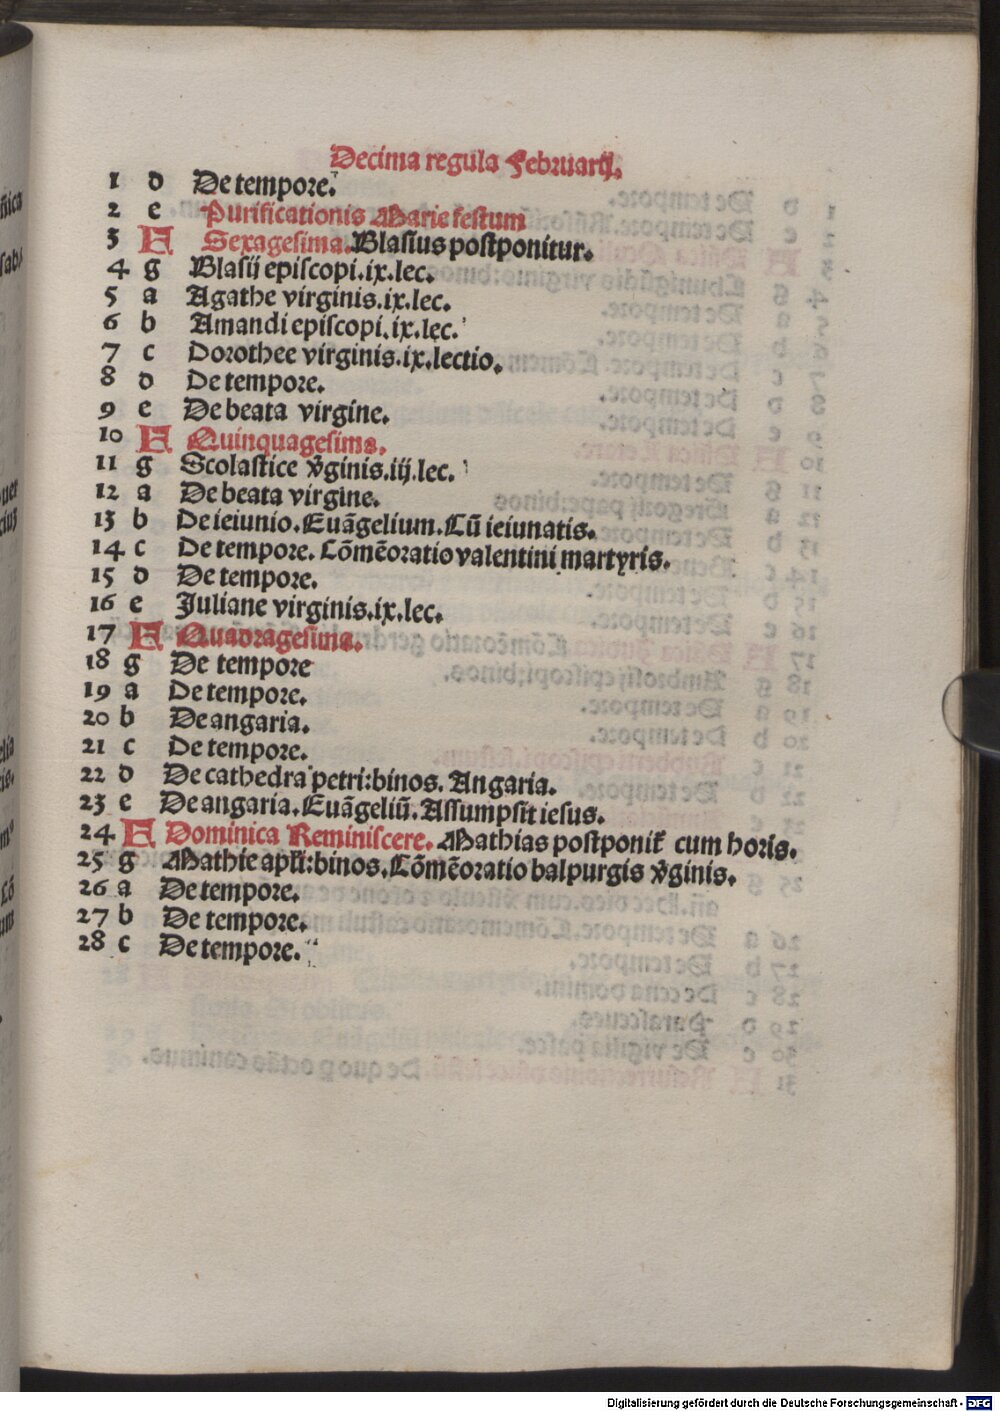 Decima regula Februarij.
1 d De tempore.
2 e Purificationis Marie festum
3 F Sexagesima. Blasius postponitur.
4 g Blasij episcopi.ix.lec.
5 a Agathe virginis.ix.lec.
6 b Amandi episcopi.ix.lec.
7 c Dorothee virginis.ix.lectio.
8 d De tempore.
9 e De beata virgine.
10 F Quinquagesima.
11 g Scolastice v̄ginis.iij.lec.
12 a De beata virgine.
13 b De ieiunio. Euāgelium. Cū ieiunatis.
14 c De tempore. Cōmēoratio valentini martyris.
15 d De tempore.
16 e Juliane virginis.ix.lec.
17 F Quadragesima.
18 g De tempore
19 a De tempore.
20 b De angaria.
21 c De tempore.
22 d De cathedra petri:binos. Angaria.
23 e De angaria. Euāgeliū. Assumpsit iesus.
24 F Dominica Reminiscere. Mathias postponit᷑ cum horis.
25 g Mathie apl̄i:binos. Cōmēoratio balpurgis v̄ginis.
26 a De tempore.
27 b De tempore.
28 c De tempore.
Digitalisierung gefördert durch die Deutsche Forschungsgemeinschaft - DFG